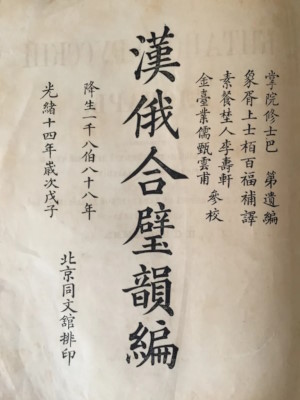 掌院修士巴　第遺編
象胥上士柏百福補譯
素餐埜人李壽軒
金臺業儒甄雲甫　參校
漢俄合璧韻編
降生一千八伯八十八年
光緒十四年歲次戊子
北京同文館排印